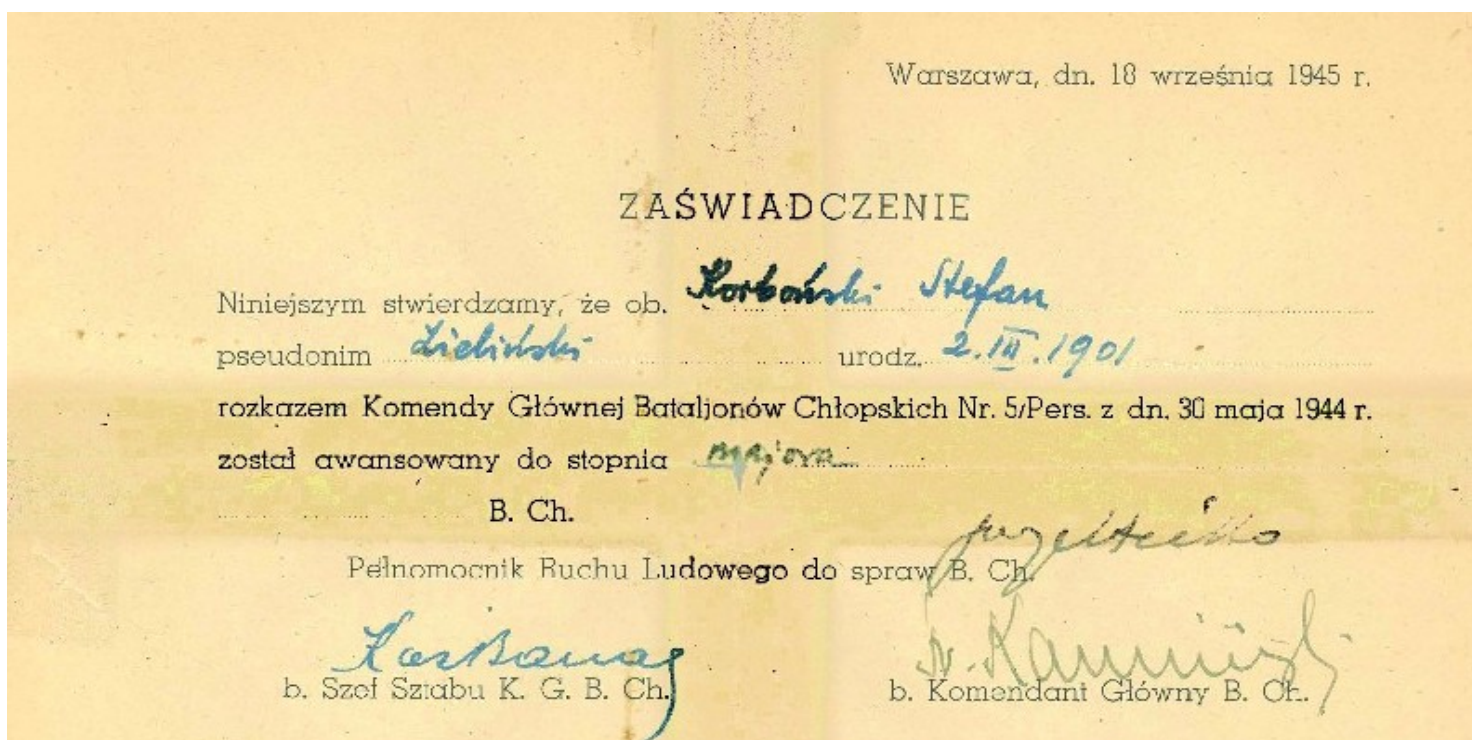 Warszawa, dn. 18 września 1945 r.
ZAŚWIADCZENIE
Niniejszym stwierdzamy, że ob. Korboński Stefan
pseudonim Zieliński urodz. 2.III.1901
rozkazem Komendy Głównej Bataljonów Chłopskich Nr. 5/Pers. z dn. 30 maja 1944 r.
został awansowany do stopnia majora
B. Ch.
Pełnomocnik Ruchu Ludowego do spraw B. Ch.
Kaz Banach
b. Szef Sztabu K. G. B. Ch.
b. Komendant Główny B. Ch.